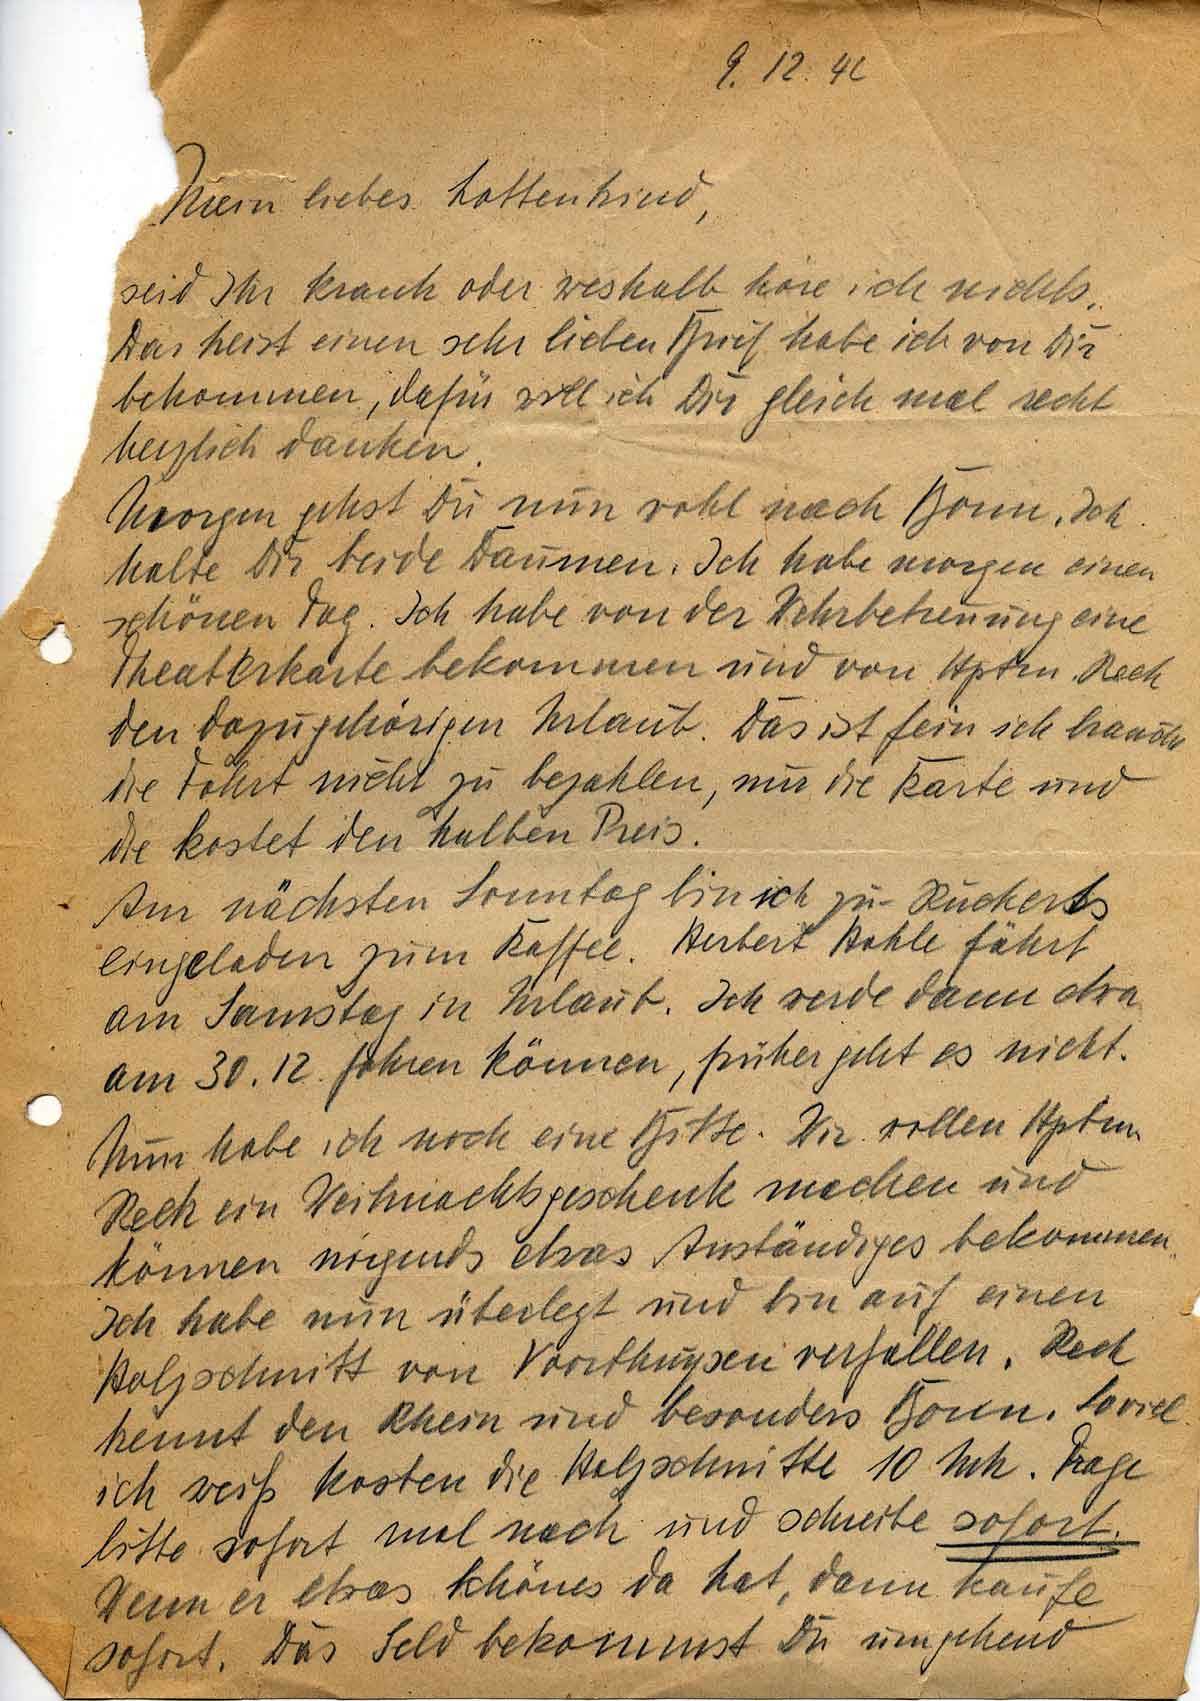 9. 12. 42
Mein liebes Lottenkind,
seid Ihr krank oder weshalb höre ich nichts.
Das heist einen sehr lieben Brief habe ich von Dir
bekommen, dafür will ich Dir gleich mal recht
herzlich danken.
Morgen gehst Du nun wohl nach Bonn. Ich
halte Dir beide Daumen. Ich habe morgen einen
schönen Tag. Ich habe von der Wehrbetreuung eine
Theaterkarte bekommen und von Hptm. Reck
den dazugehörigen Urlaub. Das ist fein ich brauch
die Fahrt nicht zu bezahlen, nur die Karte und
die kostet den halben Preis.
Am nächsten Sonntag bin ich zu Rückerts
eingeladen zum Kaffee. Herbert Hohle fährt
am Samstag in Urlaub. Ich werde dann etwa
am 30. 12. fahren können, früher geht es nicht.
Nun habe ich noch eine Bitte. Wir wollen Hptm.
Reck ein Weihnachtsgeschenk machen und
können nirgends etwas Anständiges bekommen.
Ich habe nun überlegt und bin auf einen
Holzschnitt von Voorthuysen verfallen. Reck
kennt den Rhein und besonders Bonn. Soviel
ich weiß kosten die Holzschnitte 10 Mk. Frage
bitte sofort mal nach und schreibe sofort.
Wenn er etwas schönes da hat, dann kaufe
sofort. Das Geld bekommst Du umgehend